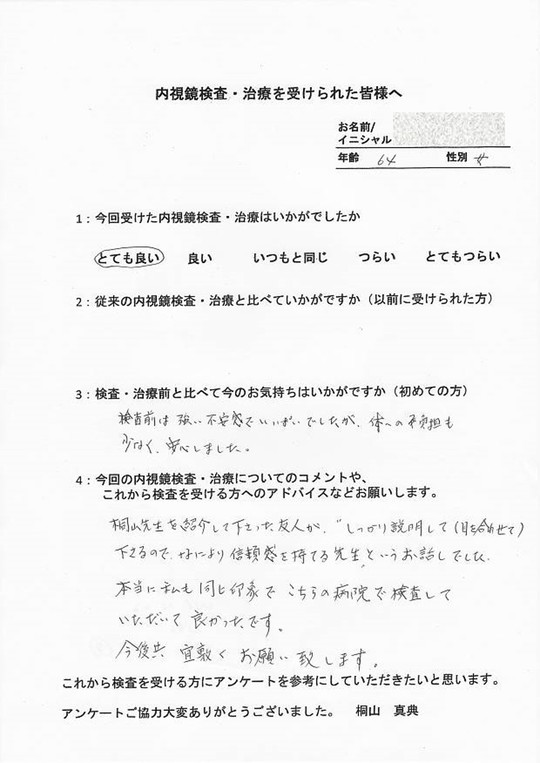 内視鏡検査・治療を受けられた皆様へ
お名前/
イニシャル
年齢 64 性別 女
1：今回受けた内視鏡検査・治療はいかがでしたか
とても良い 良い いつもと同じ つらい とてもつらい
2：従来の内視鏡検査・治療と比べていかがですか（以前に受けられた方）
3：検査・治療前と比べて今のお気持ちはいかがですか（初めての方）
検査前は強い不安感でいっぱいでしたが、体への負担も
少なく、安心しました。
4：今回の内視鏡検査・治療についてのコメントや、
これから検査を受ける方へのアドバイスなどお願いします。
桐山先生を紹介して下さった友人が、"しっかり説明して(目を合わせて)
下さるので、なにより信頼感を持てる先生"というお話しでした。
本当に私も同じ印象で こちらの病院で検査して
いただいて 良かったです。
今後共 宜敷く お願い致します。
これから検査を受ける方にアンケートを参考にしていただきたいと思います。
アンケートご協力大変ありがとうございました。 桐山 真典